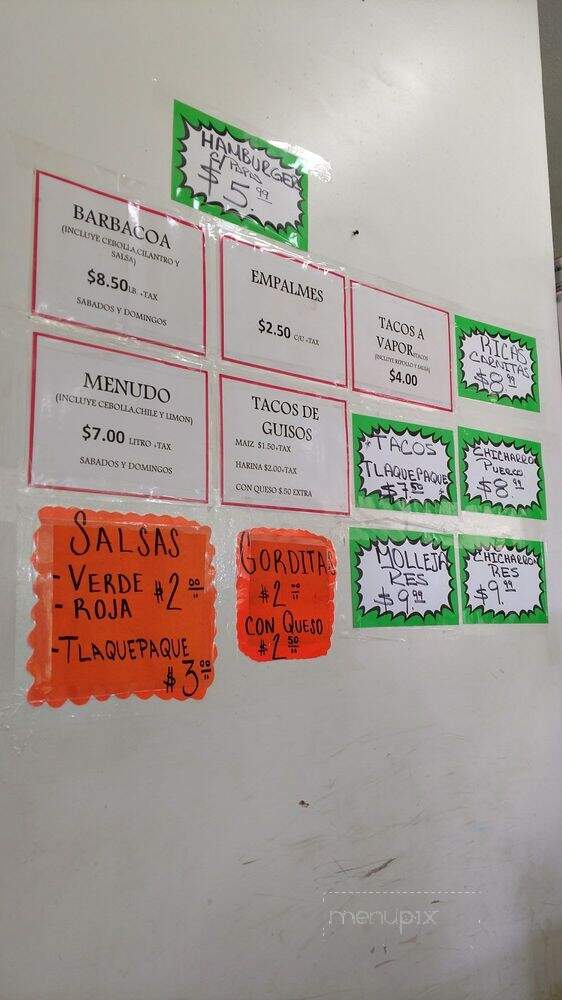 HAMBURGER
C/PAPAS
$5.99
BARBACOA
(INCLUYE CEBOLLA,CILANTRO Y
SALSA)
$8.50LB. +TAX
SABADOS Y DOMINGOS
EMPALMES
$2.50 C/U +TAX
TACOS A
VAPOR(5TACOS
INCLUYE REPOLLO Y SALSA)
$4.00
RICAS
CARNITAS
$8.99
MENUDO
(INCLUYE CEBOLLA,CHILE Y LIMON)
$7.00 LITRO +TAX
SABADOS Y DOMINGOS
TACOS DE
GUISOS
MAIZ $1.50+TAX
HARINA $2.00+TAX
CON QUESO $.50 EXTRA
*TACOS
TLAQUEPAQUE*
$7.50
CHICHARRON
PUERCO
$8.99
SALSAS
- VERDE $2.00
- ROJA
-TLAQUEPAQUE
$3.00
GORDITAS
$2.00
CON QUESO
$2.50
MOLLEJA
RES
$9.99
CHICHARRON
RES
$9.99
menupix